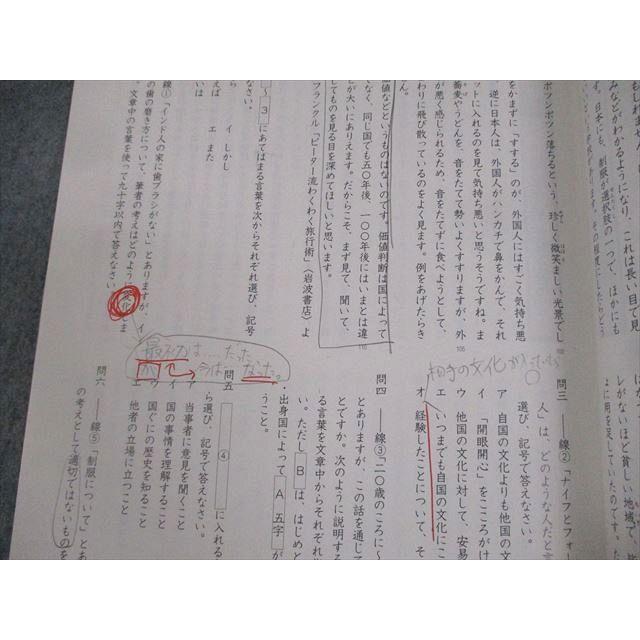 みなどがわかるようになり、これは長い目で
ポツンポツン落ちるという、珍しく微笑ましい光景でし
をかまずに「すする」のが、外国人にはすごく気持ち悪
逆に日本人は、外国人がハンカチで鼻をかんで、それ
ットに入れるのを見て気持ち悪いと思うそうですね。ま
蕎麦やうどんを、音をたてて勢いよくすすりますが、外
が悪く感じられるため、音をたてずに食べようとして、
わりに飛び散っているのをよく見ます。例をあげたらき
ん。
価値などというものはないのです。価値判断は国によって
でなく、同じ国でも五〇年後、一〇〇年後にはいまとは違
とが大いにありえます。だからこそ、まず見て、聞いて、
してものを見る目を深めてほしいと思います。
フランクル「ピーター流わくわく旅行術」〈岩波書店〉よ
〜 3 にあてはまる言葉を次からそれぞれ選び、記号
なさい。
イ しかし
エ また
線①「インド人の家に歯ブラシがない」とありますが、イ
の歯の磨き方について、筆者の考えはどのように変化しま
文章中の言葉を使って九十字以内で答えなさい。
最初は…だった
が
今は…なった。
相手の文化が
問三 ――線②「ナイフとフォー
人」は、どのような人だと言
選び、記号で答えなさい。
ア 自国の文化よりも他国の文
イ 「開眼開心」をこころがけ
ウ 他国の文化に対して、安易
エ いつまでも自国の文化にこ
オ 経験したことについて、そ
問四 ――線③「二〇歳のころに〜
とありますが、この話を通じて
とですか。次のように説明する
る言葉を文章中からそれぞれ
い。ただし B は、はじめと
・出身国によって A 五字 が
うこと。
問五 ④ に入れる
ら選び、記号で答えなさい。
ア 当事者に意見を聞くこと
イ 国の事情を理解すること
ウ 国ぐにの歴史を知ること
エ 他者の立場に立つこと
問六 ――線⑤「制服について」とあ
の考えとして適切ではないものを